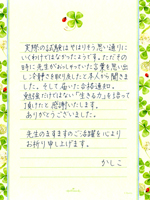 実際の試験はやはりそう思い通りに
いくわけではなかったようです。ただその
時に先生がおっしゃっていた言葉を思い出
し冷静さを取り戻したと本人から聞きま
した。そして届いた合格通知。
勉強だけではない「生きる力」を培って
頂けたと感謝いたします。
ありがとうございました。
先生のますますのご活躍を心より
お祈り申し上げます。
かしこ